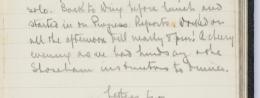 solo. Back to Duty before lunch and
started in on Progress Reports & worked on
all the afternoon till nearly 5 pm. A cheery
evening as we had Lindsay & the
Shoreham instructors to dinner.
Letter from